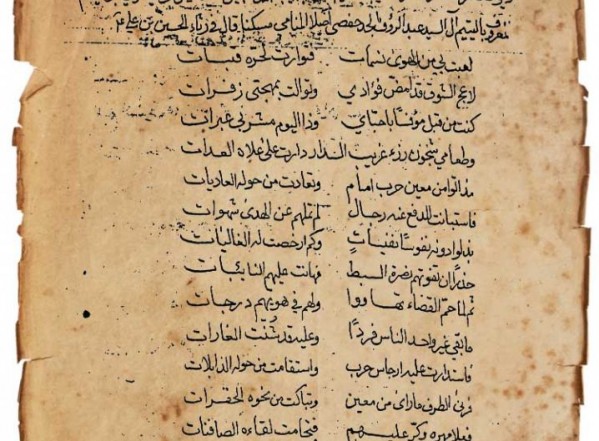 معروف باليتيم آل السيد عبد الرؤف الجد حفصي أصلا المنامي مسكنا قال في رثاء الحسين بن علي ع
لعبت بي من الهوى نسمات فتوارت لحره قبسات
لاعج الشوق قد امض فؤادي وتوالت بمهجتي زفرات
كنت من قبل موثقا وذا اليوم مشربي عبرات
وطعامي شجون رزء غريب الدار دارت على علاه العدات
مذ الوا من معين حرب امام وتعادت من حوله العاديات
فاستبانت للدفع عنه رجال لم تلههم عن الهدى شهوات
بذلوا دونه نفوسا نفيسات وكم ارخصت له الغاليات
حذرا ان تفوتهم نصرة السبط فهانت عليهم النائبات
ثم لما حم القضاء تهاووا ولهم في هويهم درجات
ما بقي غير واحد الناس فردا وعليه قد شنت الغارات
فاستدارت عليه ارجاس حرب واستقامت من حوله الذابلات
فرنى الطرف ما رأى من معين وتباكت من نحوه الخفرات
وكر عليهم فتحامت لقاءه الصافنات